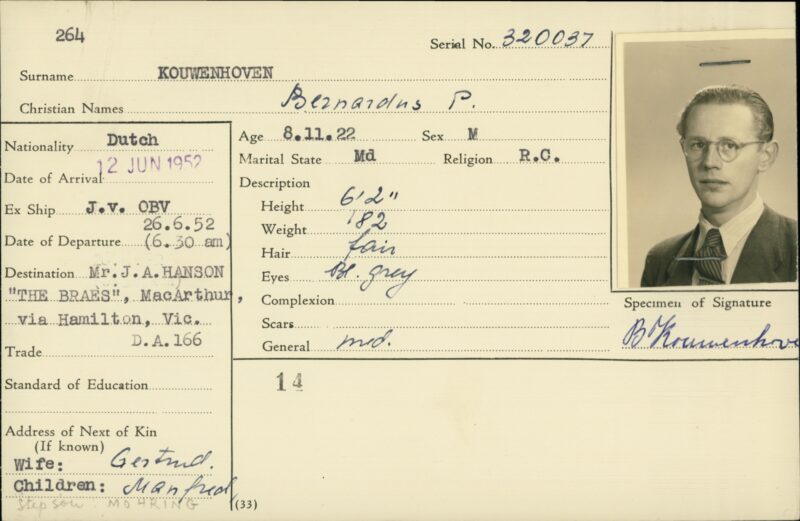 264
Serial No. 320037
Surname KOUWENHOVEN
Christian Names Bernardus P.
Nationality Dutch
Date of Arrival 12 JUN 1952
Ex Ship J.v. OBV
26.6.52
Date of Departure (6.30 am)
Destination Mr.J.A.HANSON
"THE BRAES", MacArthur,
via Hamilton, Vic.
D.A.166
Trade
Standard of Education
Address of Next of Kin
(If known)
Wife: Gertrud.
Children: Manfred
Stepson MOHRING
(33)
Age 8.11.22 Sex M
Marital State Md Religion R.C.
Description
Height 6'2"
Weight 182
Hair fair
Eyes Bl. grey
Complexion
Scars
General med.
14
Specimen of Signature
BPKouwenhove